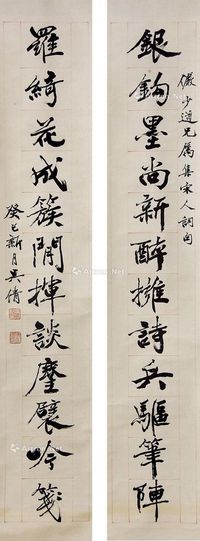 儼少道兄属集宋人詞句
銀鉤墨尚新醉擁詩兵驅筆陣
羅綺花成簇閒揮談麈襞吟箋
癸巳新月吴倩